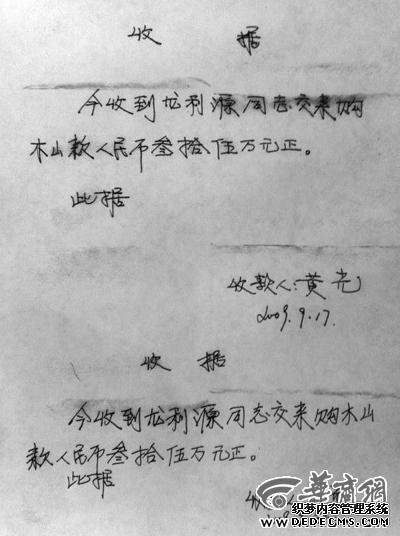 收 据
今收到龙利源同志交来购
木山款人民币叁拾伍万元正。
此据
收款人:黄光
2009.9.17.
收 据
今收到龙利源同志交来购木山
款人民币叁拾伍万元正。
此据
收
华商网
织梦内容管理系统
DEDECMS.COM